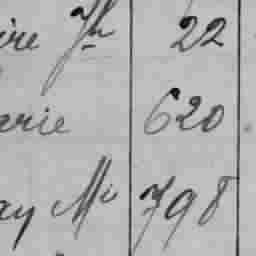 ire Jn 22
arie 620
ay Mi 798